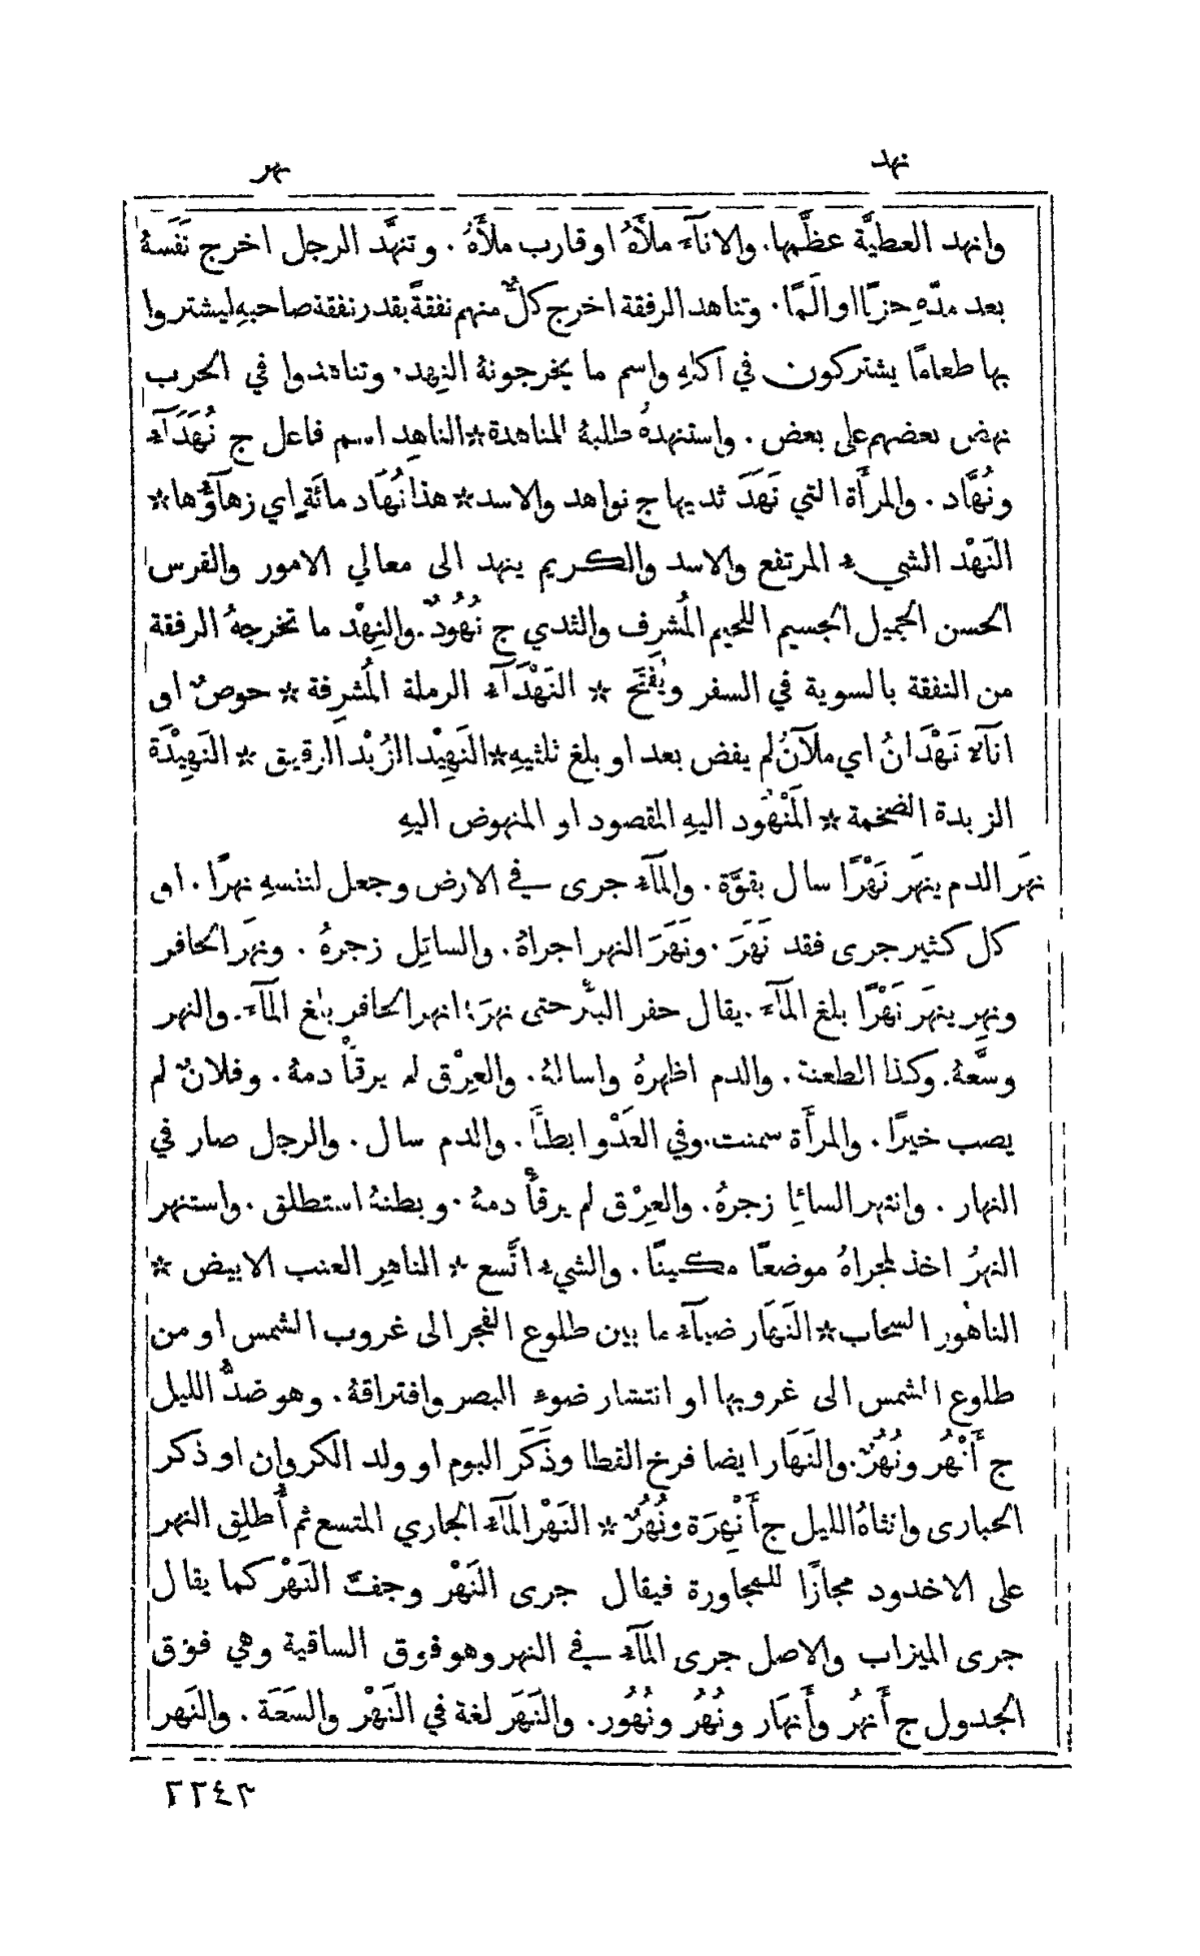 نهد
نهر
وانهد العطيَّة عظَّمها. والاناۤءَ ملأَهُ او قارب ملأَهُ. وتنهَّد الرجل اخرج نَفَسهُ
بعد مدّهِ حزنًا او المًا. وتناهد الرفقة اخرج كلٌّ منهم نفقةً بقدر نفقة صاحبهِ ليشتروا
بها طعامًا يشتركون في اكلهِ واسم ما يخرجونهُ النِهد. وتناهدوا في الحرب
نهض بعضهم على بعض. واستنهدهُ طلبهُ المناهدة * الناهِد اسم فاعل ج نُهَدَاۤء
ونُهَّاد. والمرأَة التي نَهَدَ ثديها ج نواهد والاسد * هذا نُهَاد مائَةٍ اي زهاۤؤُها *
النَهْد الشيء المرتفع والاسد والكريم ينهد الى معالي الامور والفرس
الحسن الجميل الجسيم اللحيم المُشرِف والثدي ج نُهُودٌ. والنِهْد ما تخرجهُ الرفقة
من النفقة بالسوية في السفر ويُفتَح * النَهْدَاۤء الرملة المُشرِفة * حوضٌ او
اناۤء نَهْدَانُ اي ملآنُ لم يفض بعد او بلغ ثلثيهِ * النَهِيْد الزُبْد الرقيق * النَهِيْدَة
الزبدة الضخمة * المَنْهُود اليهِ المقصود او المنهوض اليهِ
نهَر الدم ينهَر نَهْرًا سال بقوَّة. والماۤء جرى في الارض وجعل لنفسهِ نهرًا. او
كل كثير جرى فقد نَهَرَ. ونَهَرَ النهر اجراهُ. والسائِل زجرهُ. ونهَر الحافر
ونهِر ينهَر نَهْرًا بلغ الماۤء. يقال حفر البئر حتى نهَرَ: انهر الحافر بلغ الماۤء. والنهر
وسَّعهُ. وكذا الطعنة. والدم اظهرهُ واسالهُ. والعِرْق لم يرقأْ دمهُ. وفلانٌ لم
يصب خيرًا. والمرأَة سمنت. وفي العَدْو ابطأَ. والدم سال. والرجل صار في
النهار. وانتهر السائِل زجرهُ. والعِرْق لم يرقأْ دمهُ. وبطنهُ استطلق. واستنهر
النهرُ اخذ لمجراهُ موضعًا مكينًا. والشيء اتَّسع * الناهِر العنب الابيض *
الناهُور السحاب * النَهَار ضياۤء ما بين طلوع الفجر الى غروب الشمس او من
طلوع الشمس الى غروبها او انتشار ضوء البصر وافتراقهُ. وهو ضدُّ الليل
ج أَنْهُر ونُهُرٌ. والنَهَار ايضا فرخ القطا وذَكَر البوم او ولد الكروان او ذكر
الحبارى وانثاهُ الليل ج أَنْهِرَة ونُهُرٌ * النَهْر الماۤء الجاري المتسع ثم أُطلِق النهر
على الاخدود مجازًا للمجاورة فيقال جرى النَهْر وجفَّ النَهْر كما يقال
جرى الميزاب والاصل جرى الماۤء في النهر وهو فوق الساقية وهي فوق
الجدول ج أَنهرُ وأَنهَار ونُهُرُ ونُهُور. والنَهَر لغة في النَهْر والسَعَة. والنَهر
٢٢٤٣